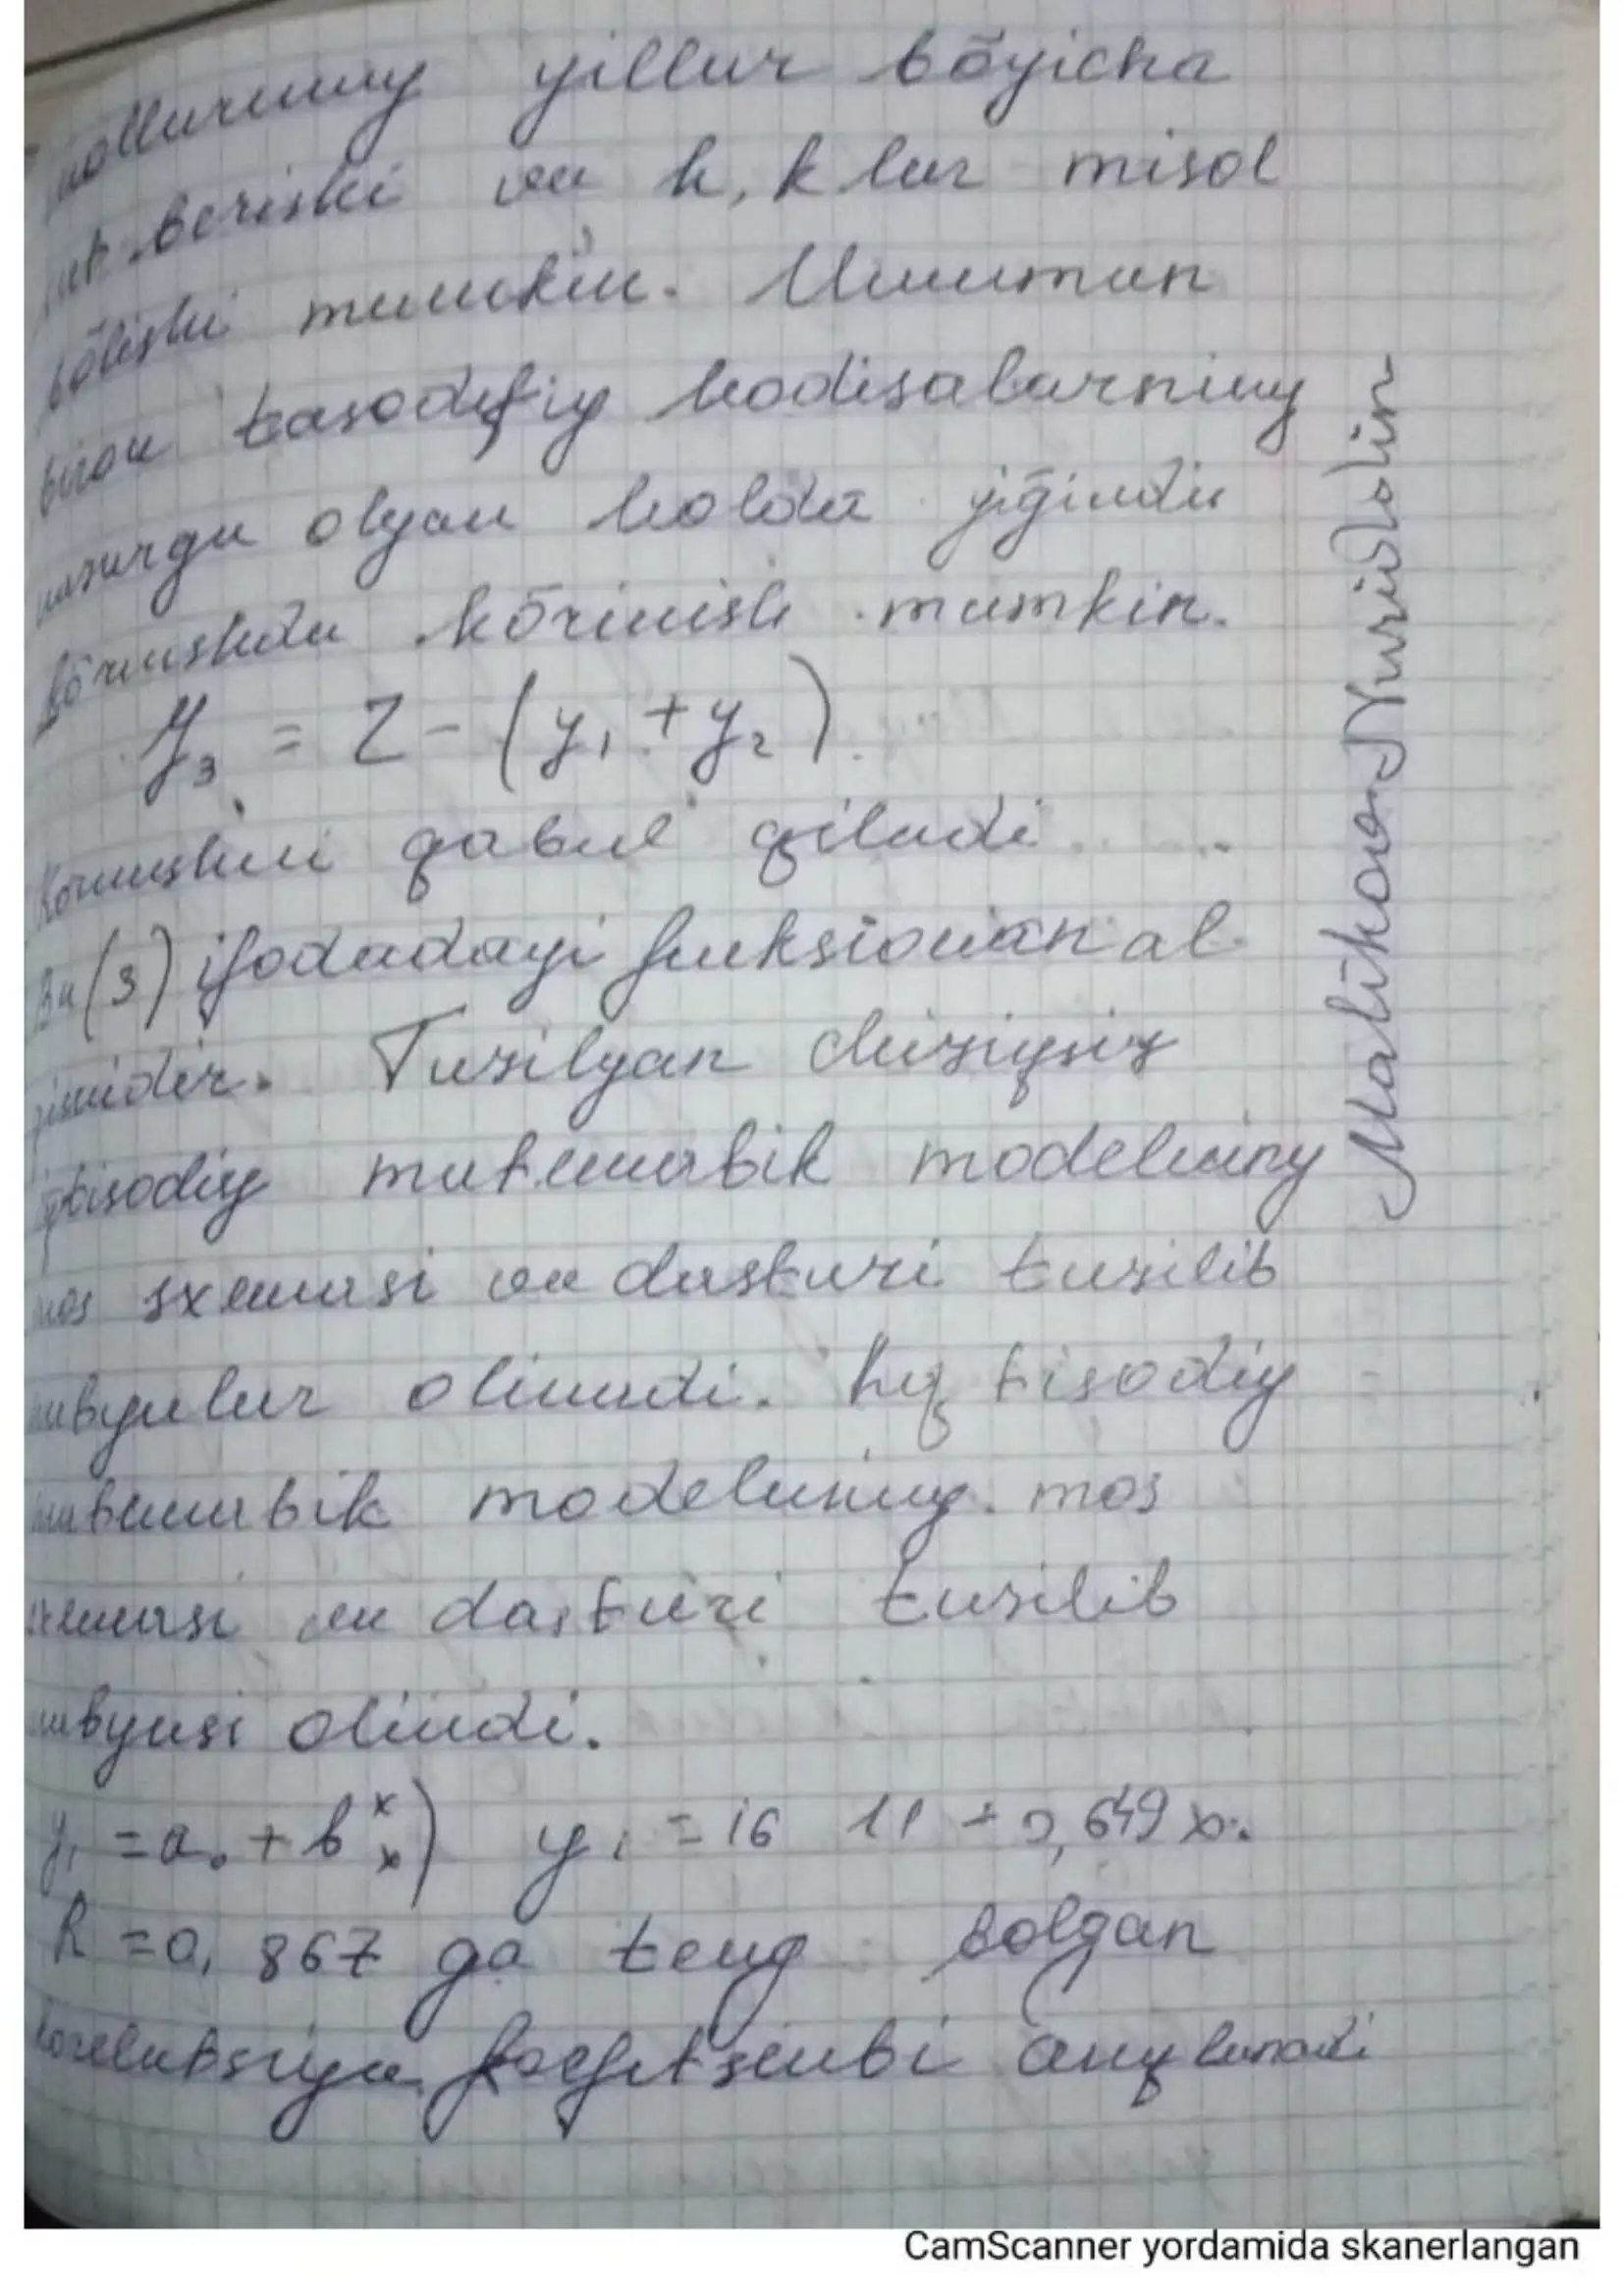 yillar bõyicha
berishi va h, k lar misol
bõlishi mumkin. Umuman
tasodifiy hodisalarning
nazarga olgan holda yiğindi
kõrinishda kõrinish mumkin.
y₃ = Z - (y₁ + y₂)
kõrinishni qabul qiladi
Bu (3) ifodadagi funksionanal
Tuzilgan chiziqsiz
iqtisodiy matematik modelning
mos sxemasi va dasturi tuzilib
natijalar olinadi. Iqtisodiy
matematik modelning mos
sxemasi va dasturi tuzilib
natijasi olindi.
y₁ = a₀ + b
R = 0,867 ga teng bolgan
korelatsiya koefitsienti aniqlanadi
Malikova Nuriddin
CamScanner yordamida skanerlangan